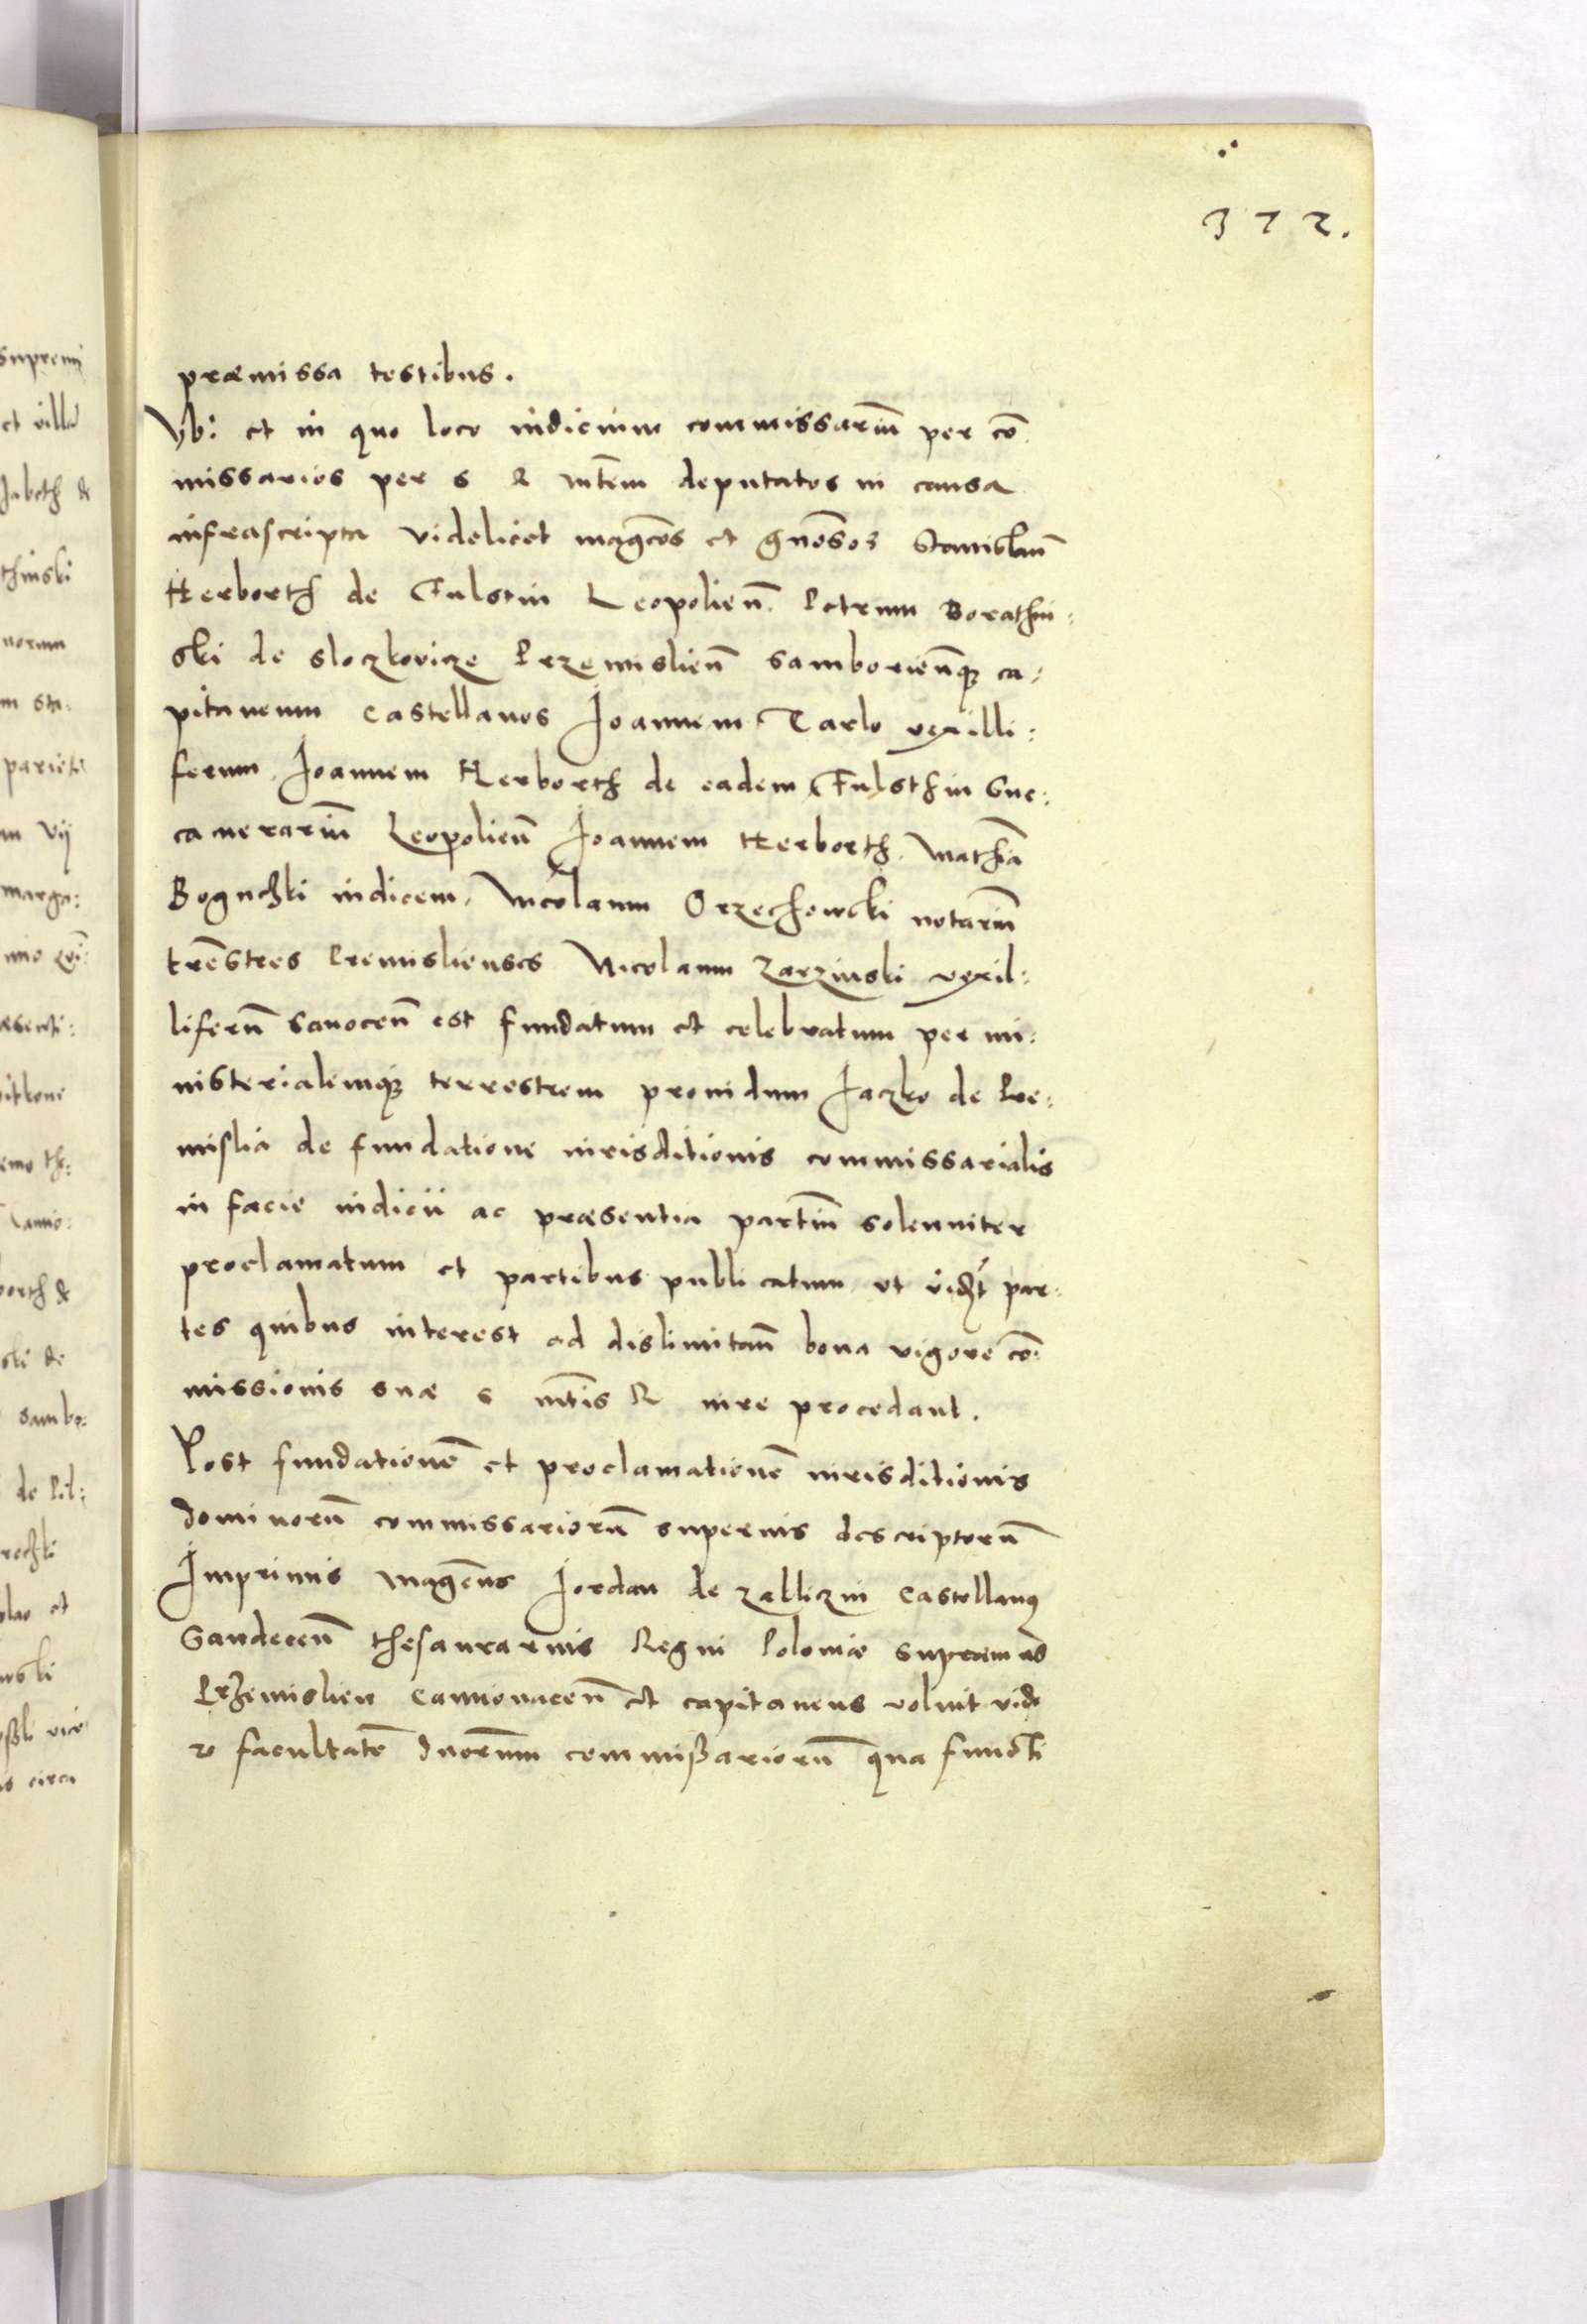 372.
præmissa testibus.
Vbi et in quo loco iudicium commissariũ per cõ
missarios per S R Mtem deputatos in causa
infrascripta videlicet mag̃cos et gn̄osos Stanislaũ
Herborth de Fulstin Leopolieñ. Petrum Borathin:
ski de Sloczkovicze Przemislieñ Samborieñq3 ca:
pitaneum castellanos Joannem Tarlo vexilli:
ferum, Joannem Herborth de eadem Fulsthin Suc:
camerariũ Leopolieñ Joannem Herborth, Mathiã
Boguchki iudicem, Nicolaum Orzechowski notariũ
trẽstres Premislienses Nicolaum Zarzinski vexil:
liferũ Sanoceñ est fundatum et celebratum per mi:
nisterialemq3 terrestrem prouidum Jaczko de Pre:
mislia de fundatione iurisditionis commissarialis
in facie iudicii ac præsentia partiũ solenniter
proclamatum et partibus publicatum ut vidz̃t par:
tes quibus interest ad dislimitañ bona vigore cõ:
missionis suæ S Mtis R iure procedant.
Post fundationẽ et proclamationẽ iurisditionis
dominorũ commissariorũ superius descriptorũ
Imprimis Mag̃cus Jordan de Zakliczin Castellanus
Sandeceñ thesaurarius Regni Poloniæ supræmus
Przemislien Camionaceñ et capitaneus voluit vide
re facultatẽ dnorum commissariorũ qua functi
supremi
et villa
norum
m sta:
m vij
marga:
emo th:
borth de
ski de
Sambo:
de Pil:
is circa